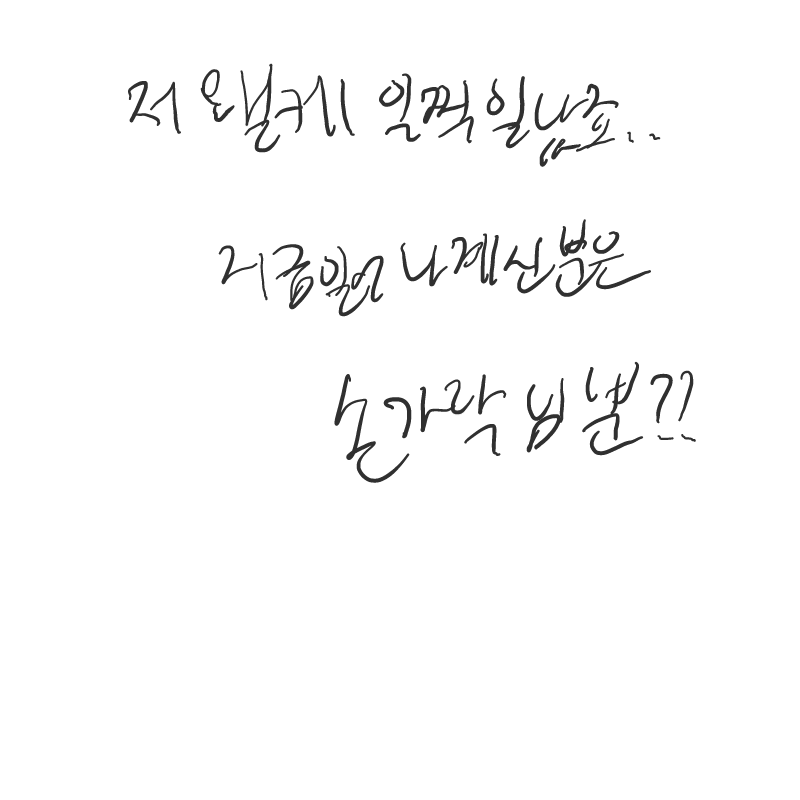 저 왤케 일찍 일남죠..
지금 일어나 계신분은
손가락 님 분??